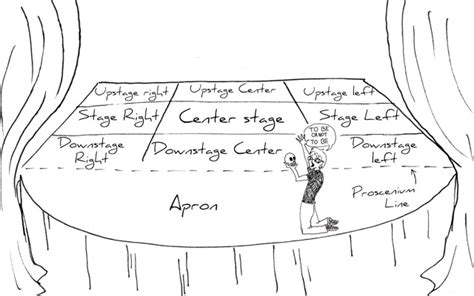 Upstage right Upstage Center Upstage left
Stage Right Center stage Stage Left
TO BE
OR NOT
TO BE
Downstage
Right
Downstage Center
Downstage
left
Proscenium
Line
Apron